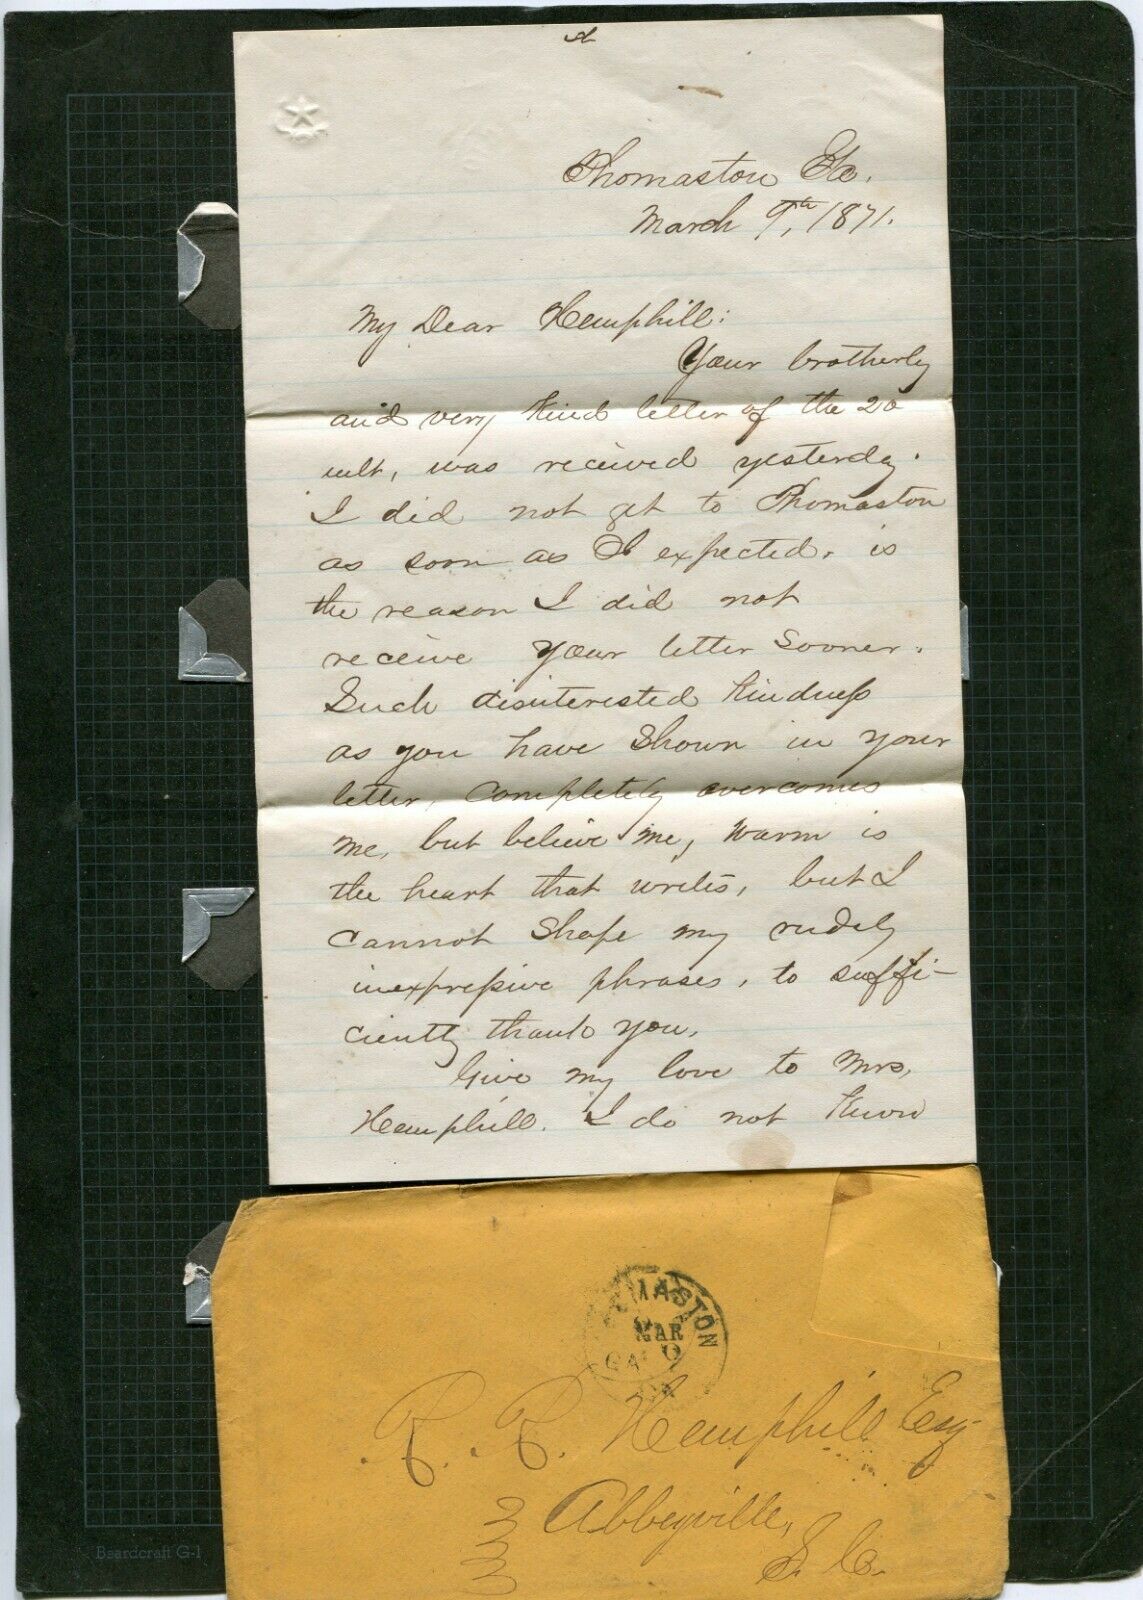 Thomaston Ga.
March 9th, 1871.
My Dear Hemphill:
Your brotherly
and very kind letter of the 20
ult, was received yesterday.
I did not get to Thomaston
as soon as I expected, is
the reason I did not
receive your letter sooner.
Such disinterested kindness
as you have shown in your
letter, completely overcomes
me, but believe me, warm is
the heart that writes, but I
cannot shape my rudely
inexpressive phrases, to suffi-
ciently thank you.
Give my love to Mrs.
Hemphill. I do not know
MASTON
MAR
GA
R. R. Hemphill Esq
Abbeyville,
S. C.
Beardcraft G-1